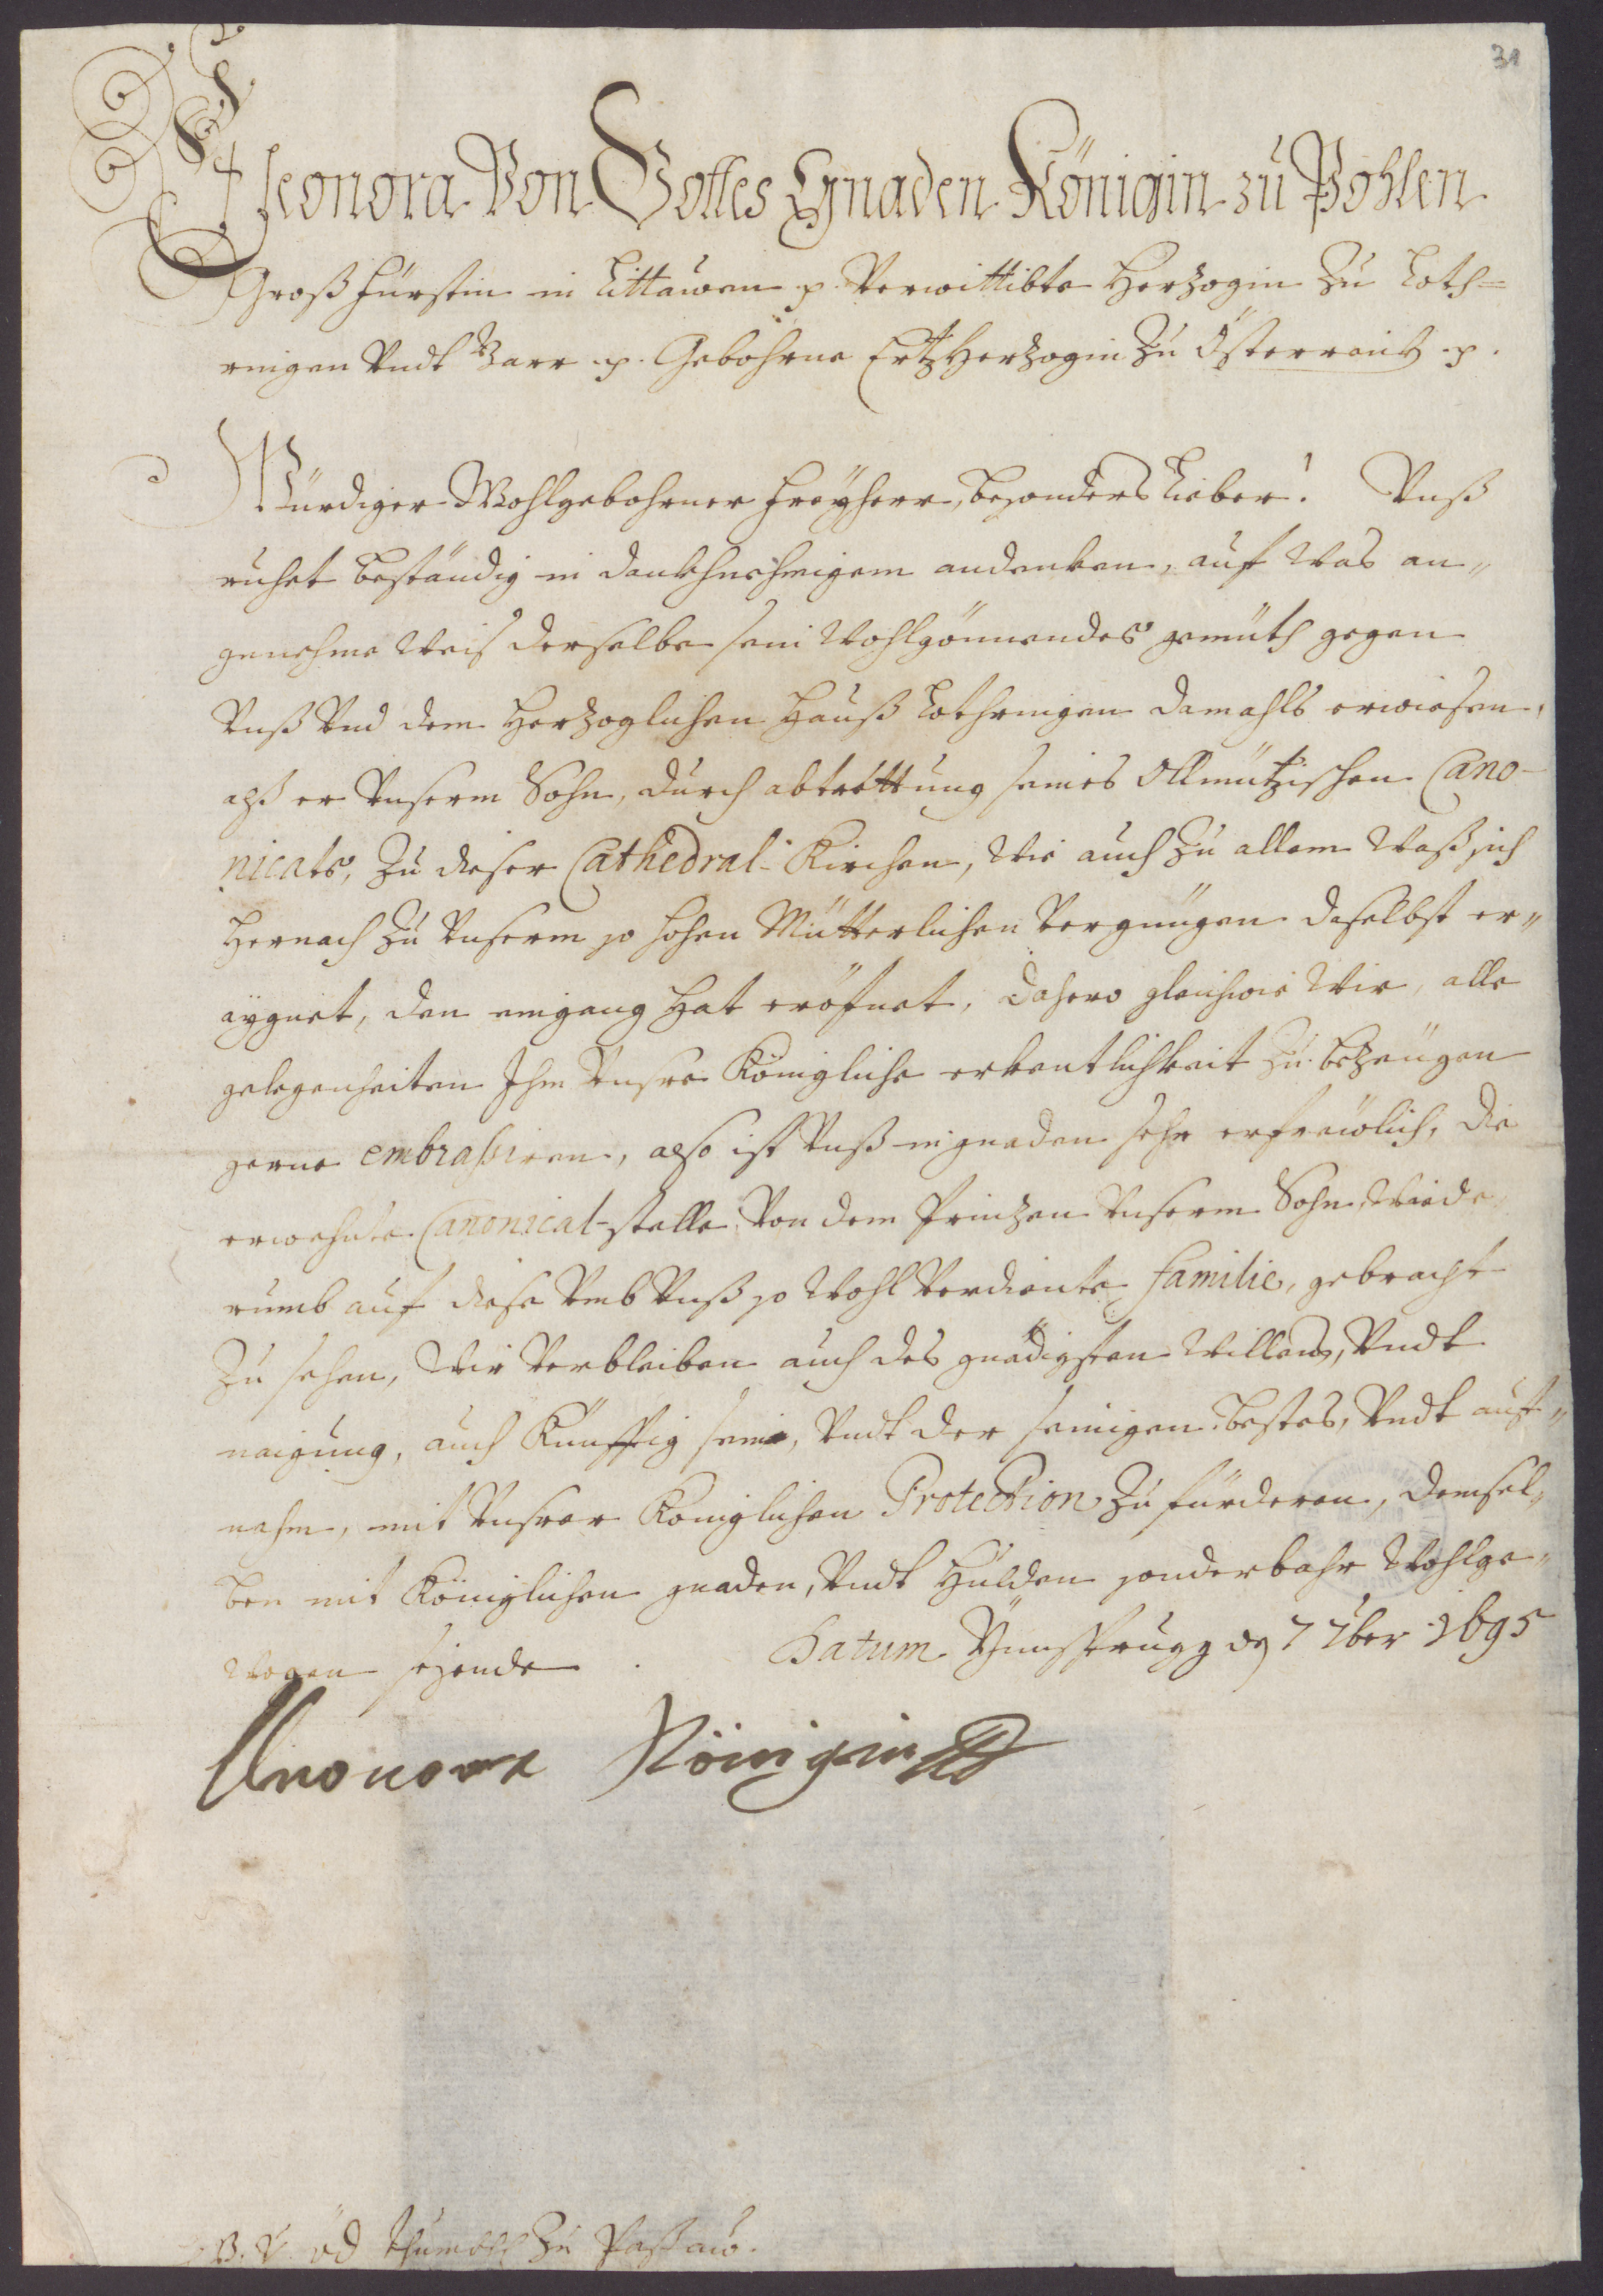 31
Eleonora Von Gottes Gnaden Königin zu Pohlen
Großfürstin in Littauen p. Verwittibte Herzogin Zu Loth=
ringen Vndt Barr .p. Gebohrne ErtzHerzogin Zu Österreich .p.
Würdiger Wohlgebohrner Freyherr, besonders Lieber! Vnß
ruhet beständig in dankhnehmigem andenken, auf Was an„
genehme Weis derselbe sein Wohlgönnendes gemüth gegen
Vnß Vnd dem Herzoglichen Hauß Lothringen damahls erwiesen,
alß er Vnserm Sohn, durch abtrettung seines Ollmützischen Cano-
nicats, Zu dieser Cathedral-Kirchen, Wie auch Zu allem Waß sich
Hernach Zu Vnserm so hohen Mütterlichen Vergnügen daselbst er„
aygnet, den eingang Hat eröfnet, dahero gleichwie Wir, alle
gelegenheiten Ihm Vnsre Königliche erkentlichkeit Zu bezeügen
gerne embraßiren, also ist Vnß in gnaden sehr erfrewlich, die
erwehnte Canonical-stelle Von dem Prinzen Vnserm Sohn Wiede
rumb auf diese Vmb Vnß so Wohl Verdiente familie, gebracht
Zu sehen, Wir Verbleiben auch des gnädigsten Willens, Vndt
naigung, auch Künfftig sein, Vndt der seinigen bestes, Vndt auf„
nehm, mit Vnsrer Königlichen Protection Zu fürderen, demsel„
ben mit Königlichen gnaden, Vndt Hulden sonderbahr Wohlge„
Wogen seyende. Datum Ynnsprugg den 7 7ber 1695
Eleonora Königin
Thumbh Zu Passau.